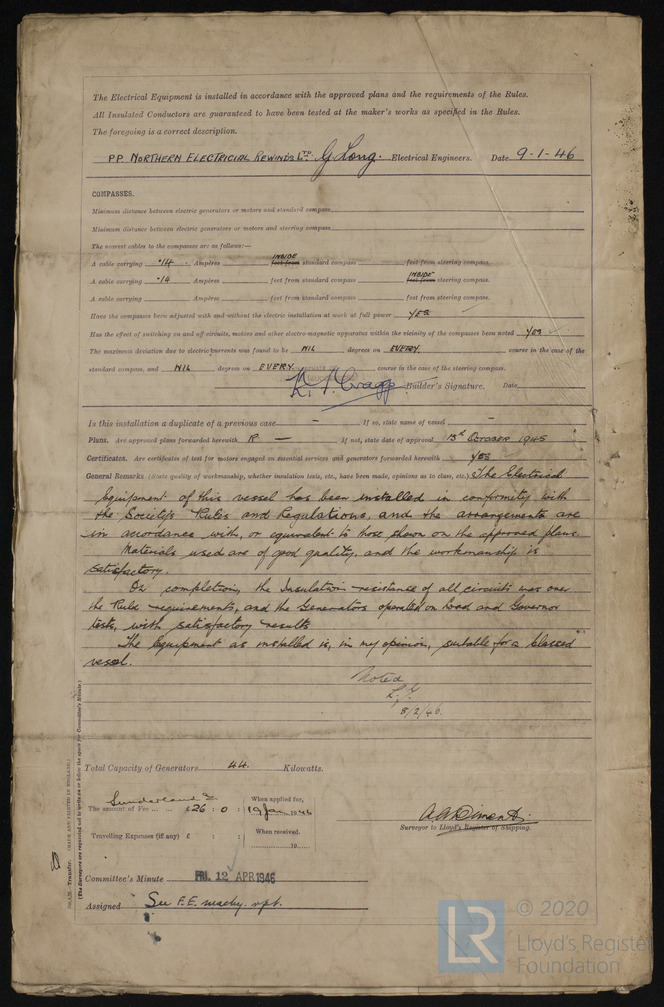 The Electrical Equipment is installed in accordance with the approved plans and the requirements of the Rules.
All Insulated Conductors are guaranteed to have been tested at the maker's works as specified in the Rules.
The foregoing is a correct description.
P.P. NORTHERN ELECTRICIAL REWINDS LTD. G Long. Electrical Engineers. Date 9-1-46
COMPASSES.
Minimum distance between electric generators or motors and standard compass
Minimum distance between electric generators or motors and steering compass
The nearest cables to the compasses are as follows:—
A cable carrying ·14 Ampères INSIDE feet from standard compass feet from steering compass.
A cable carrying ·14 Ampères feet from standard compass INSIDE feet from steering compass.
A cable carrying Ampères feet from standard compass feet from steering compass.
Have the compasses been adjusted with and without the electric installation at work at full power YES
Has the effect of switching on and off circuits, motors and other electro-magnetic apparatus within the vicinity of the compasses been noted YES
The maximum deviation due to electric currents was found to be NIL degrees on EVERY course in the case of the
standard compass, and NIL degrees on EVERY course in the case of the steering compass.
Builder's Signature. Date
Is this installation a duplicate of a previous case – If so, state name of vessel –
Plans. Are approved plans forwarded herewith – If not, state date of approval 13th October 1945
Certificates. Are certificates of test for motors engaged on essential services and generators forwarded herewith YES
General Remarks (State quality of workmanship, whether insulation tests, etc., have been made, opinions as to class, etc.) The Electrical
Equipment of this vessel has been installed in conformity with
the Society's Rules and Regulations, and the arrangements are
in accordance with, or equivalent to those shown on the approved plans.
Materials used are of good quality, and the workmanship is
satisfactory.
On completion, the Insulation resistance of all circuits was over
the Rule requirements, and the Generators operated on load and Governor
tests, with satisfactory results
The Equipment as installed is, in my opinion, suitable for a Classed
vessel.
Noted
8/2/46.
Total Capacity of Generators 44 Kilowatts.
Sunderland
The amount of Fee ... £26 : 0 : When applied for, 19 Jan 1946
Travelling Expenses (if any) £ : : When received, 19
Surveyor to Lloyd's Register of Shipping.
Committee's Minute FRI. 12 APR 1946
Assigned See F.E. machy. rpt.
Transfer. (MADE AND PRINTED IN ENGLAND.)
(The Surveyors are requested not to write on or below the space for Committee's Minute.)
LR © 2020
Lloyd's Register
Foundation